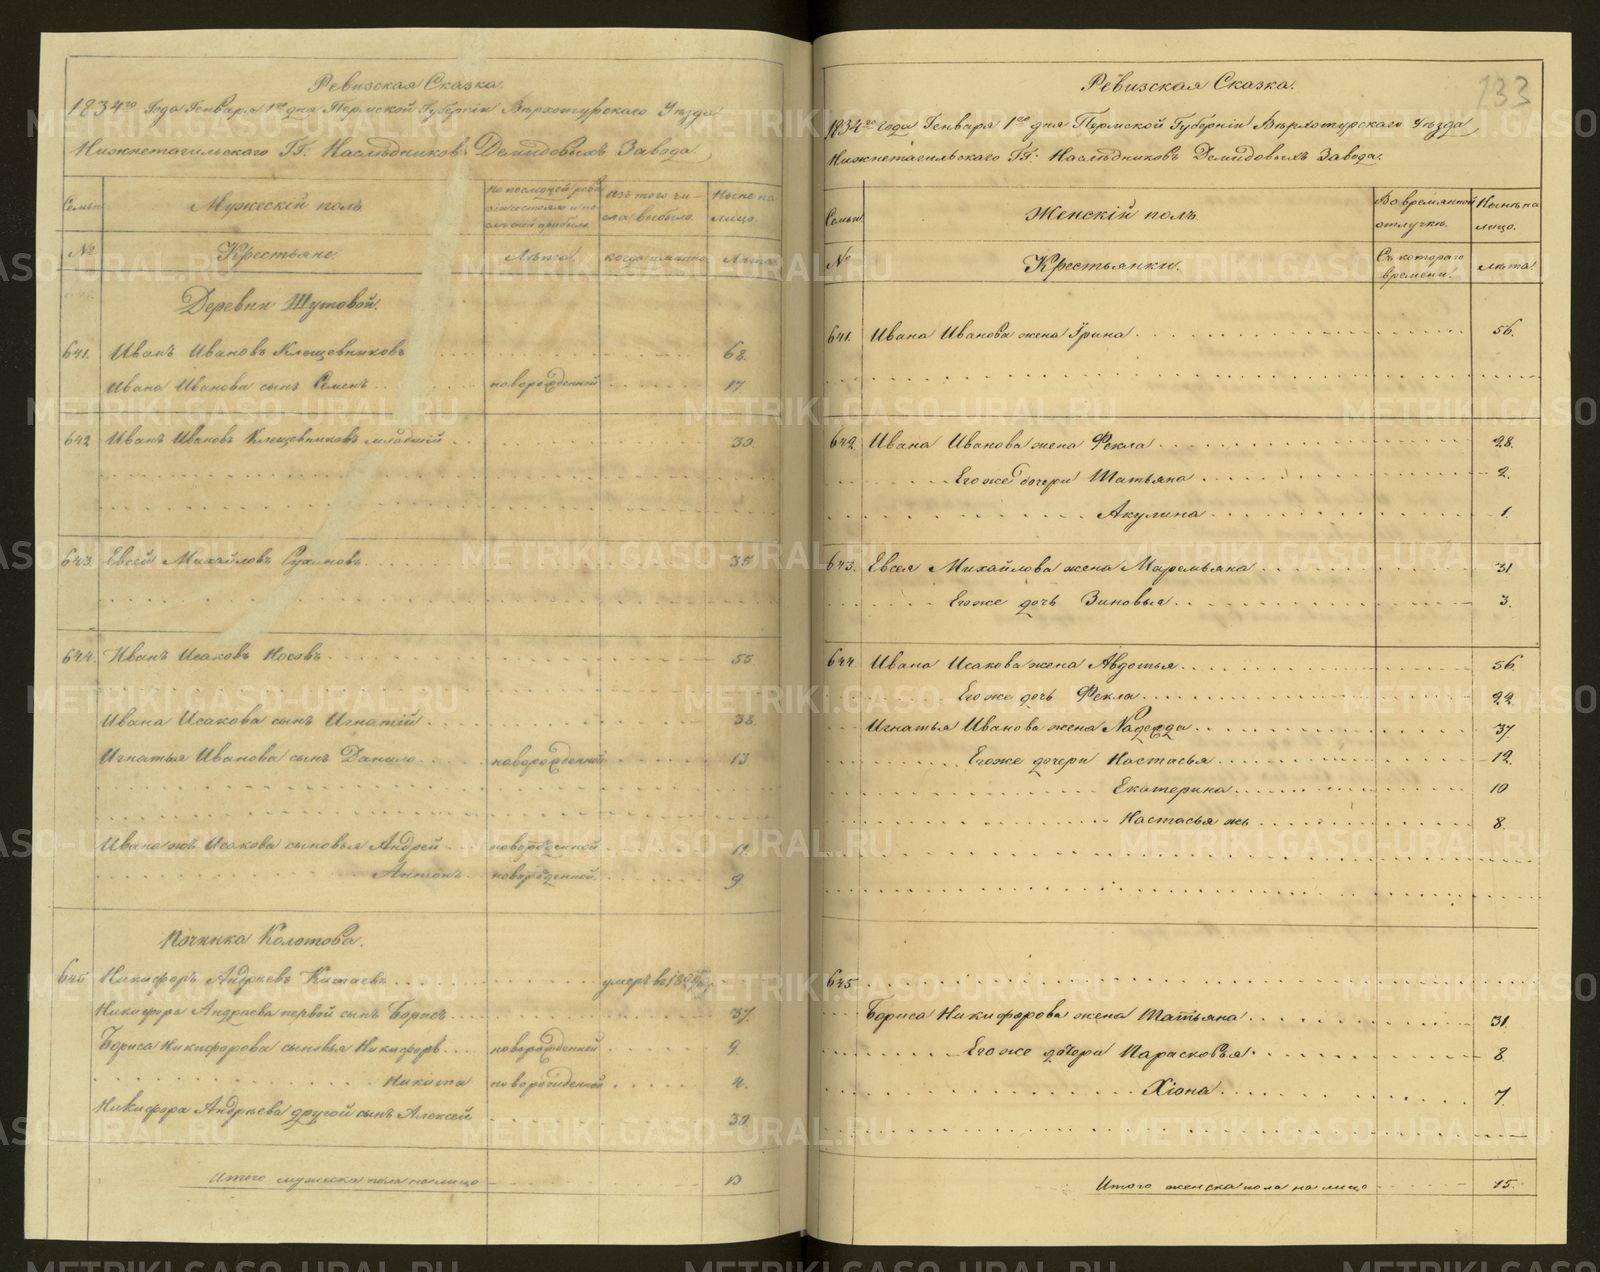 Ревизская Сказка.
1834го Года Генваря 1го дня Пермской Губернiи Верхотурскаго Уѣзда
Нижнетагильскаго ГГ: Наслѣдниковъ Демидовыхъ Завода
Семьи
Мужескiй полъ
По последней ревизiи состояло и после оной прибыло
Изъ того числа выбыло.
Ныне на лицо.
№
Крестьяне
Лѣта
когда имянно
Лѣта
Деревни Шутовой.
641. Иванъ Ивановъ Клещевниковъ 68.
Ивана Иванова сынъ Семенъ новорожденной 17
642 Иванъ Ивановъ Клещевниковъ младшiй 30.
643. Евсей Михайловъ Сухановъ 35
644. Иванъ Исаковъ Носовъ 55
Ивана Исакова сынъ Игнатiй 38.
Игнатья Иванова сынъ Данило новорожденной 13
Ивана жъ Исакова сыновья Андрей новорожденной 11
Антонъ новорожденной 9
Починка Колотова.
645 Никифоръ Андреевъ Китаевъ умеръ въ
Никифора Андреева первой сынъ Борисъ 37.
Бориса Никифорова сыновья Никифоръ новорожденной 9
Никита новорожденной 4.
Никифора Андреева другой сынъ Алексей 30
Итого мужеска пола на лицо 13
Ревизская Сказка.
133
1834го Года Генваря 1го дня Пермской Губернiи Верхотурскаго Уѣзда
Нижнетагильскаго ГГ: Наслѣдниковъ Демидовыхъ Завода.
Семьи
Женскiй полъ
Во времянной отлучкѣ.
Нынѣ на лицо.
№
Крестьянки.
Съ котораго времени.
лѣта.
641. Ивана Иванова жена Ирина 56.
642. Ивана Иванова жена Фекла 28.
Его же дочери Татьяна 2.
Акулина 1.
643. Евсея Михайлова жена Маремьяна 31
Его же дочь Зиновья 3.
644 Ивана Исакова жена Авдотья 56.
Его же дочь Фекла 22
Игнатья Иванова жена Надежда 37.
Его же дочери Настасья 12.
Екатерина 10
Настасья жъ 8.
645
Бориса Никифорова жена Татьяна 31.
Его же дочери Парасковья 8
Хiона 7.
Итого женска пола на лицо 15.
METRIKI.GASO-URAL.RU